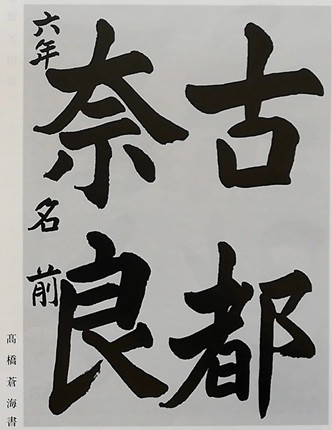 古都
奈良
六年 名前
髙橋蒼海書